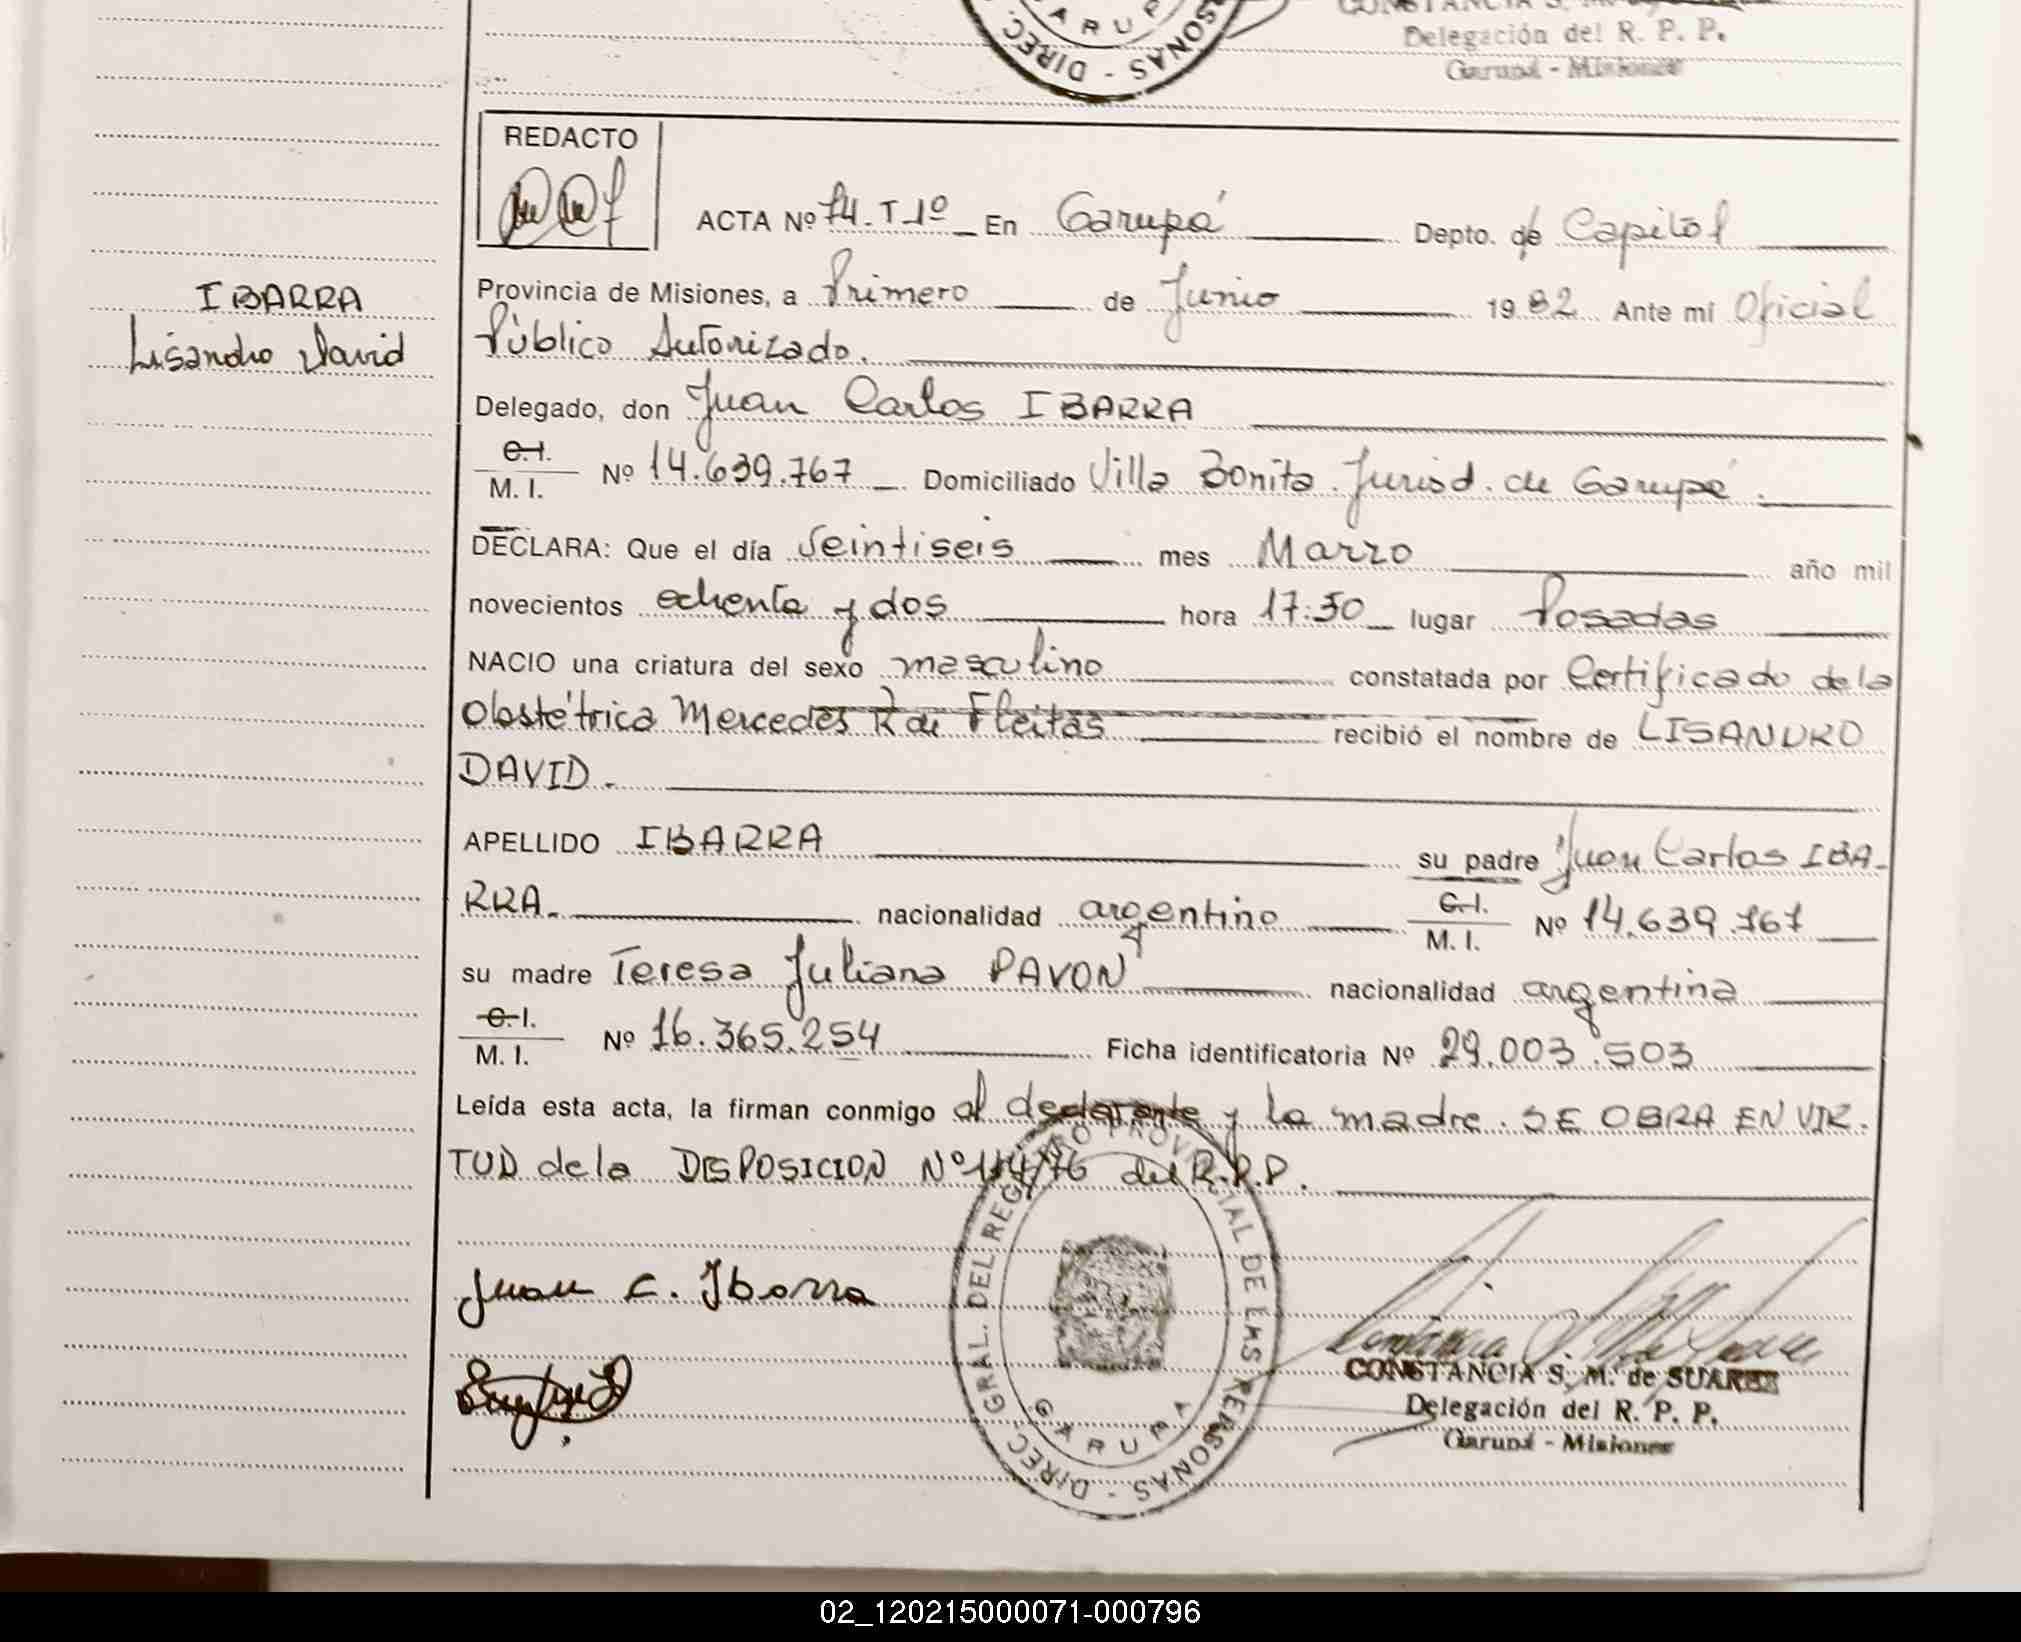 CONSTANCIA S. M.
Delegación del R. P. P.
Garupá - Misiones
GARUP
DIREC. SONAS -
REDACTO
ACTA Nº 74. T 1º En Garupá Depto. de Capital
IBARRA
Lisandro David
Provincia de Misiones, a Primero de Junio 1982 Ante mí Oficial
Público Autorizado.
Delegado, don Juan Carlos IBARRA
C.I. M. I. Nº 14.639.767 Domiciliado Villa Bonita Jurisd. de Garupá.
DECLARA: Que el día Veintiseis mes Marzo año mil
novecientos ochenta y dos hora 17:30 lugar Posadas
NACIO una criatura del sexo masculino constatada por Certificado de la
Obstétrica Mercedes R de Fleitas recibió el nombre de LISANDRO
DAVID.
APELLIDO IBARRA su padre Juan Carlos IBA-
RRA. nacionalidad argentino C.I. M. I. Nº 14.639.767
su madre Teresa Juliana PAVON nacionalidad argentina
C.I. M. I. Nº 16.365.254 Ficha identificatoria Nº 29.003.503
Leída esta acta, la firman conmigo al declarante y la madre. SE OBRA EN VIR-
TUD de la DISPOSICION Nº 114/76 del R.P.P.
Juan C. Ibarra
DIREC. GRAL. DEL REGISTRO PROVINCIAL DE LAS PERSONAS -
GARUPA
CONSTANCIA S. M. de SUAREZ
Delegación del R. P. P.
Garupá - Misiones
02_120215000071-000796